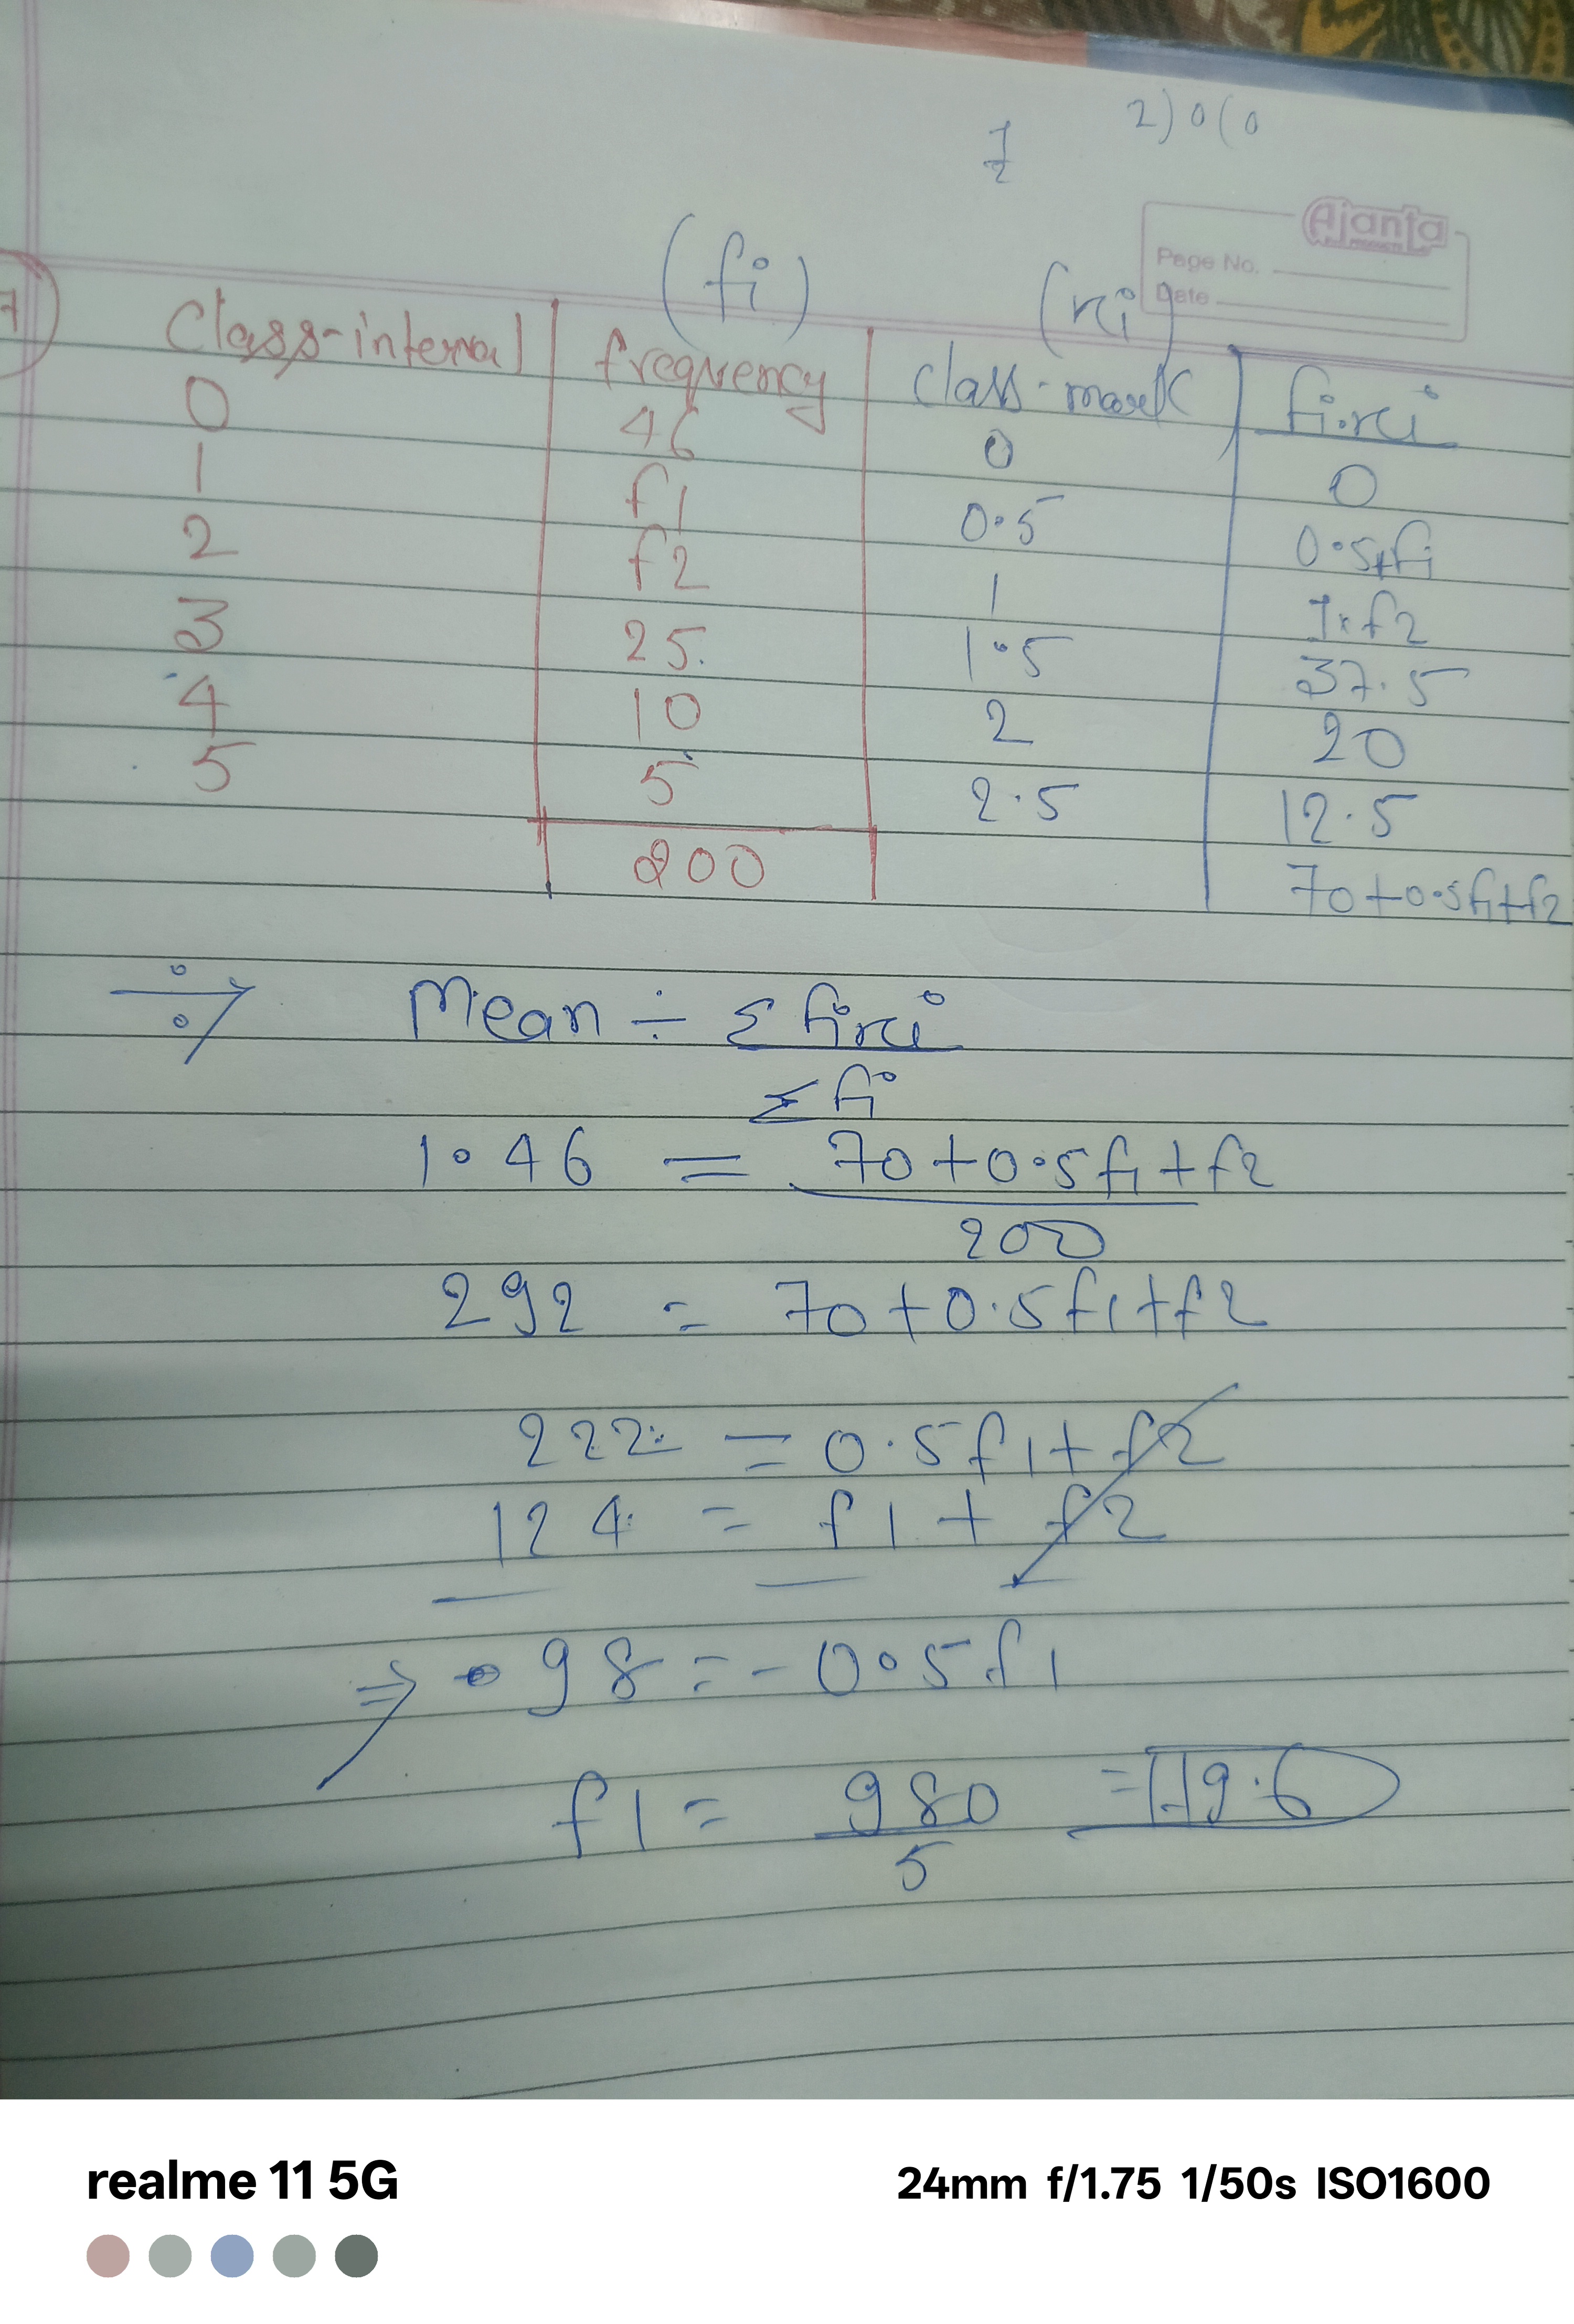 2) 0 ( 0
1/2
Ajanta
Page No.
Date
(fi) (xi)
7) Class-interval frequency class-mark fi.xi
0 46 0 0
1 f1 0.5 0.5×f1
2 f2 1 1×f2
3 25. 1.5 37.5
4 10 2 20
5 5 2.5 12.5
200 70+0.5f1+f2
÷ Mean ÷ Σfixi
Σfi
1.46 = 70+0.5f1+f2
200
292 = 70+0.5f1+f2
222 = 0.5f1+f2
124 = f1+f2
⇒ 98 = -0.5f1
f1 = 980 = 19.6
5
realme 11 5G
24mm f/1.75 1/50s ISO1600